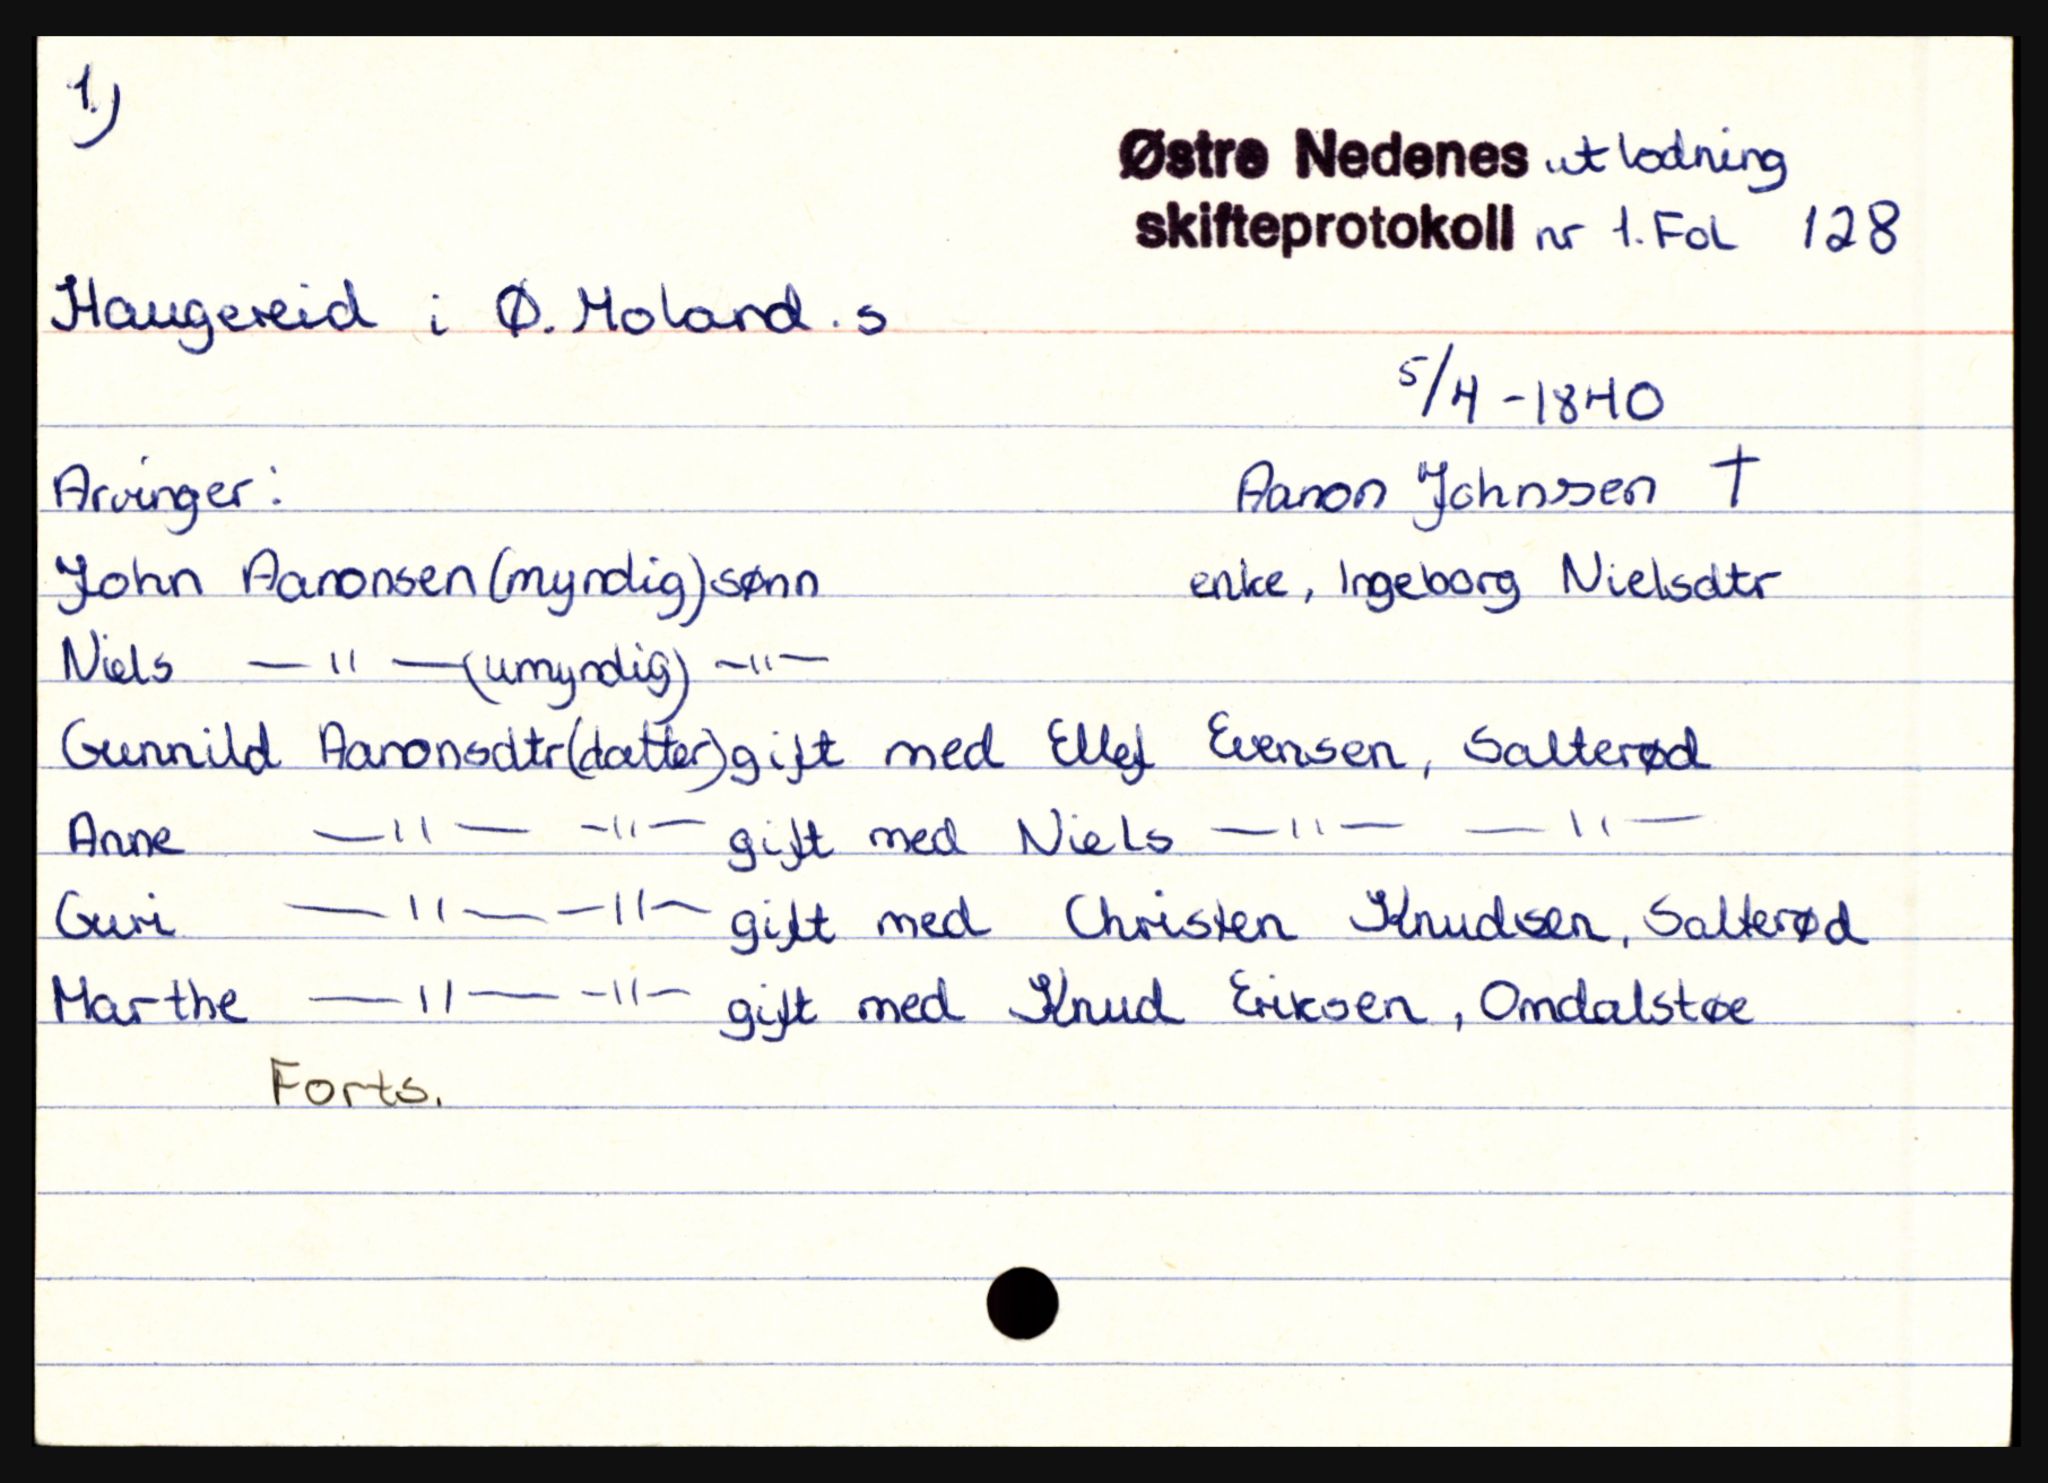 1.)
Østre Nedenes utlodning
skifteprotokoll nr 1. Fol 128
Haugereid i Ø. Moland . s
5/4 - 1840
Arvinger: Aanon Johnssen †
John Aanonsen (myndig) sønn enke, Ingeborg Nielsdtr
Niels — " — (umyndig) — " —
Gunnild Aanonsdtr (datter) gift med Ellef Evensen, Salterød
Anne — " — — " — gift med Niels — " — — " —
Guri — " — — " — gift med Christen Knudsen, Salterød
Marthe — " — — " — gift med Knud Eriksen, Omdalstøe
Forts.